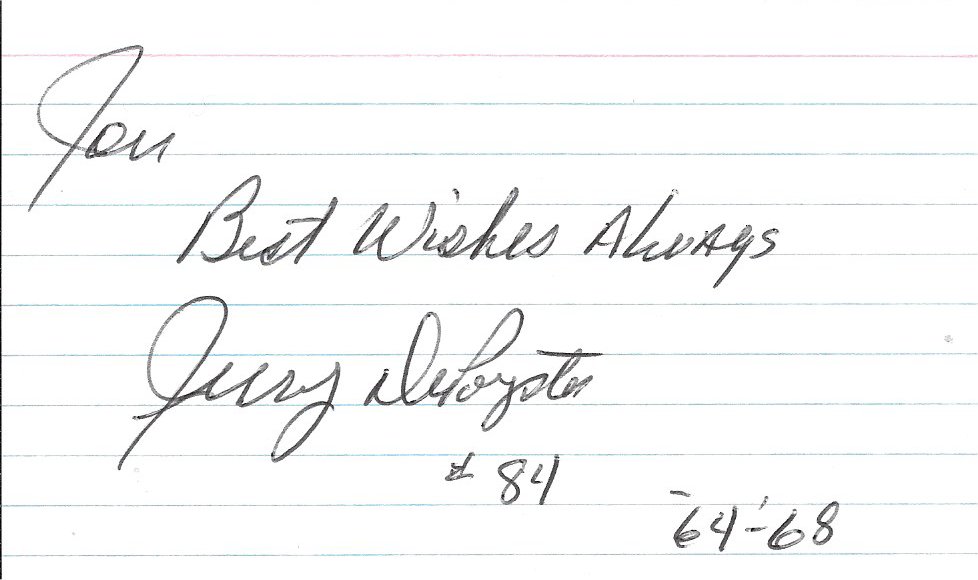 Jon
Best Wishes Always
Jerry DePoyster
# 84
'64-'68